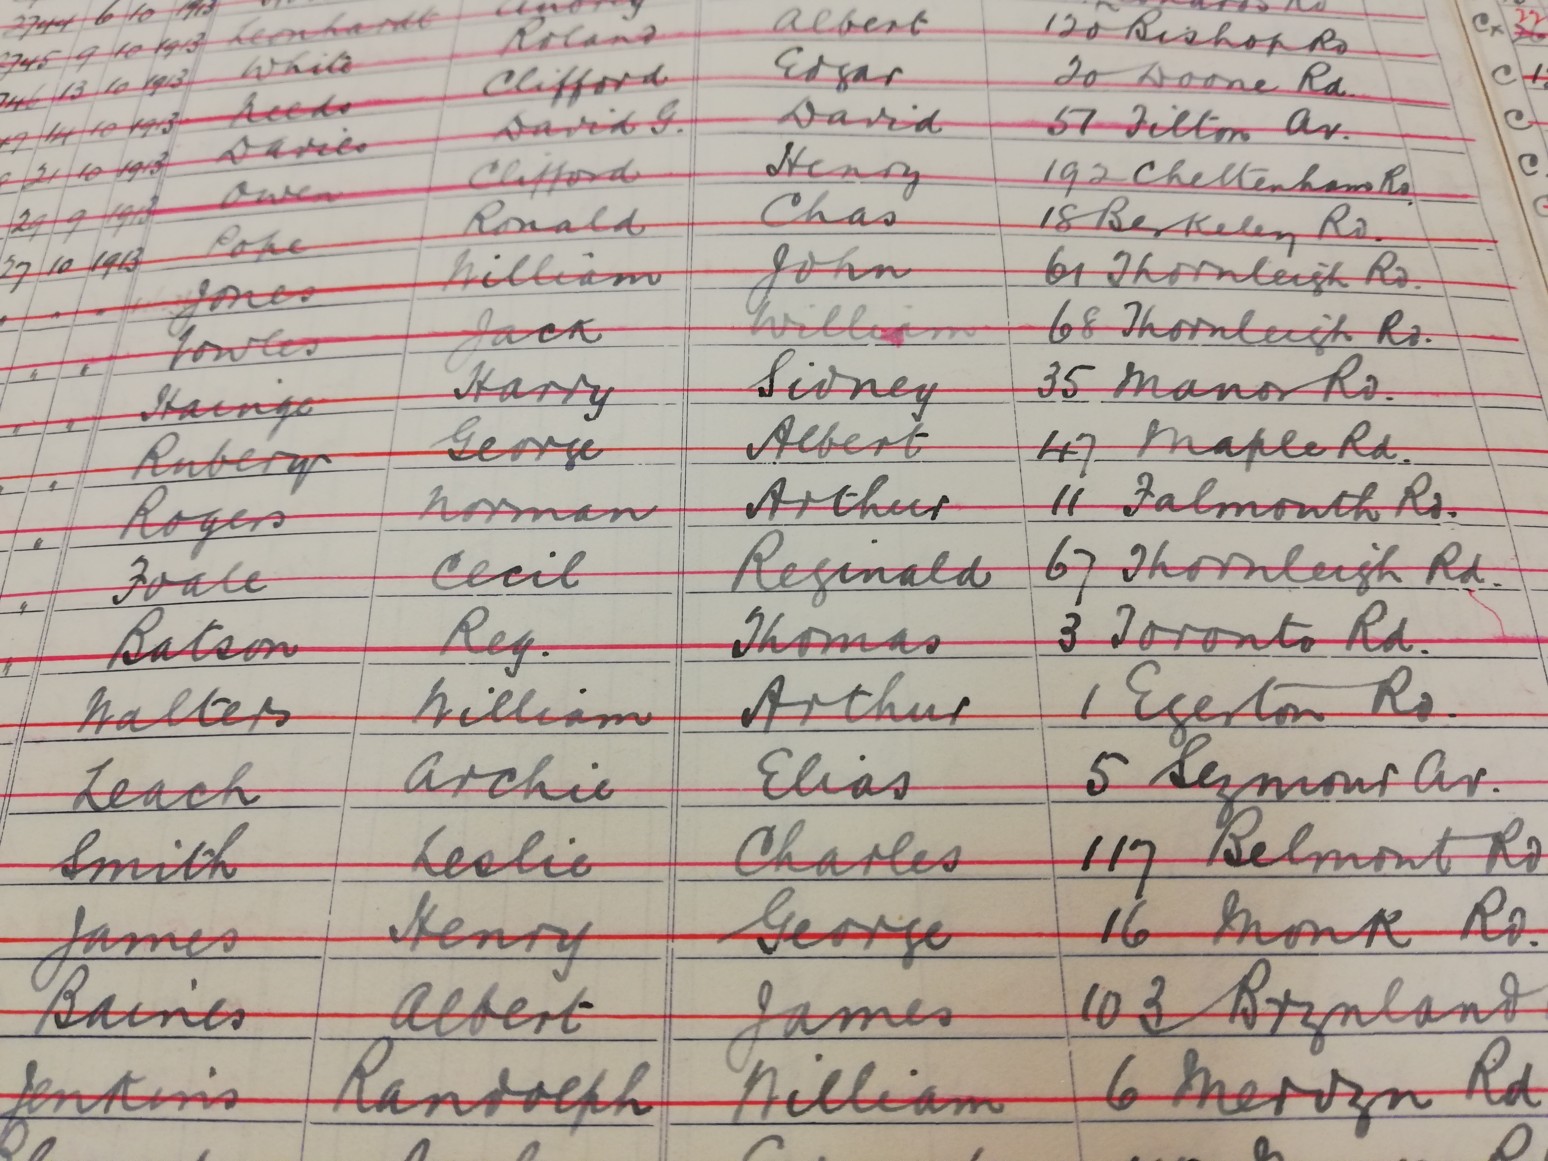 2744 6 10 1913 Leonhardt
2745 9 10 1913 White Roland Albert 120 Bishop Rd
13 10 1913 Reeds Clifford Edgar 20 Doone Rd.
14 10 1913 Davies David G. David 57 Tilton Av.
21 10 1913 Owen Clifford Henry 192 Cheltenham Rd.
29 9 1913 Pope Ronald Chas 18 Berkeley Rd.
27 10 1913 Jones William John 61 Thornleigh Rd.
" " Vowles Jack William 68 Thornleigh Rd.
" " Hainge Harry Sidney 35 Manor Rd.
" " Rubery George Albert 47 Maple Rd.
" Rogers Norman Arthur 11 Falmouth Rd.
" Foale Cecil Reginald 67 Thornleigh Rd.
" Batson Reg. Thomas 3 Toronto Rd.
Walters William Arthur 1 Egerton Rd.
Leach Archie Elias 5 Seymour Av.
Smith Leslie Charles 117 Belmont Rd
James Henry George 16 Monk Rd.
Baines Albert James 103 Brynland
Jenkins Randolph William 6 Mervyn Rd